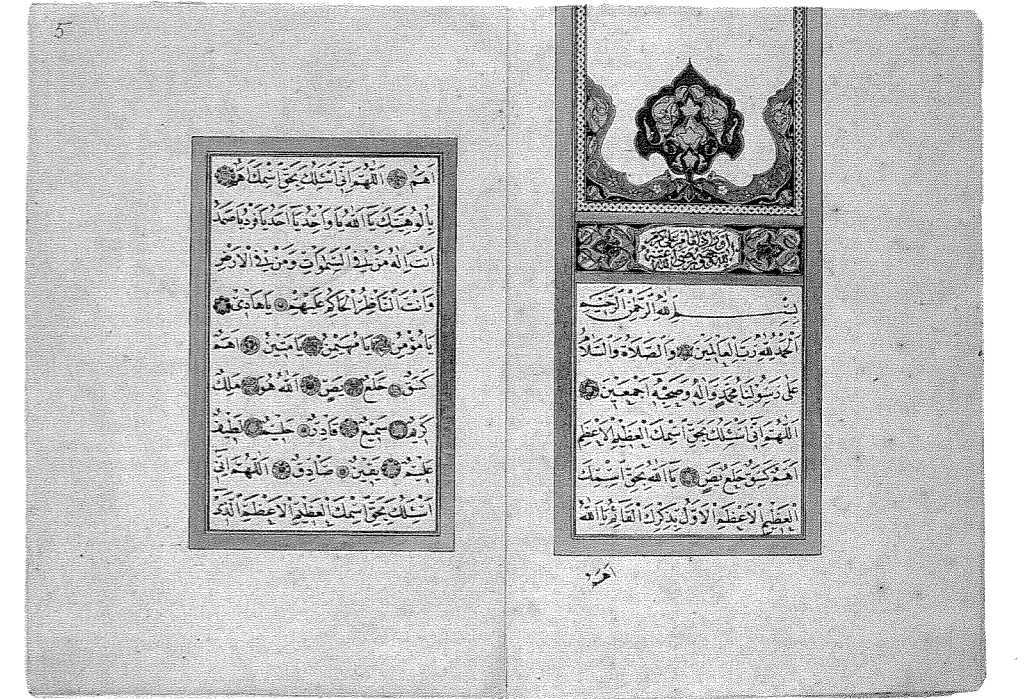 بسم الله الرحمن الرحيم
الحمد لله رب العالمين والصلاة والسلام
على رسولنا محمد وآله وصحبه اجمعين
اللهم انى اسئلك بحق اسمك العظيم الاعظم
اهم سقك حلع يص يا الله بحق اسمك
العظيم الاعظم الاول بذكرك القائم يا الله
اهم
5
اهم اللهم انى اسئلك بحق اسمك
بالوهيتك يا الله يا واحد يا احد يا ودود يا صمد
انت اله من فى السموات ومن فى الارض
وانت الناظر الحاكم عليهم يا هادى
يا مؤمن يا مهيمن يا متين اهم
حلع يص الله هو ملك
كرم سميع قادر حليم لطيف
عليم يقين صادق اللهم انى
اسئلك بحق اسمك العظيم الاعظم الذى